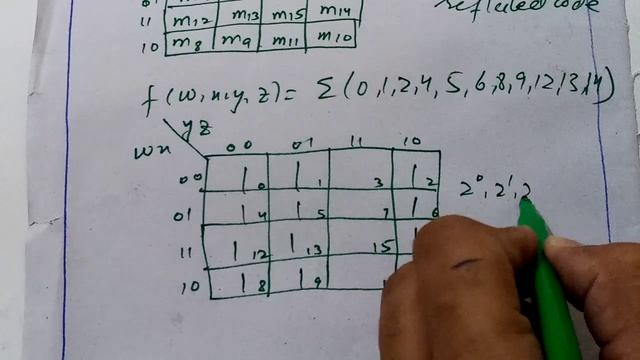 11 m12 m13 m15 m14
10 m8 m9 m11 m10
reflected code
f(w,x,y,z) = Σ(0,1,2,4,5,6,8,9,12,13,14)
yz
wx 00 01 11 10
00 1 0 1 1 3 1 2
01 1 4 1 5 7 1 6
2⁰, 2¹, 2
11 1 12 1 13 15 1
10 1 8 1 9